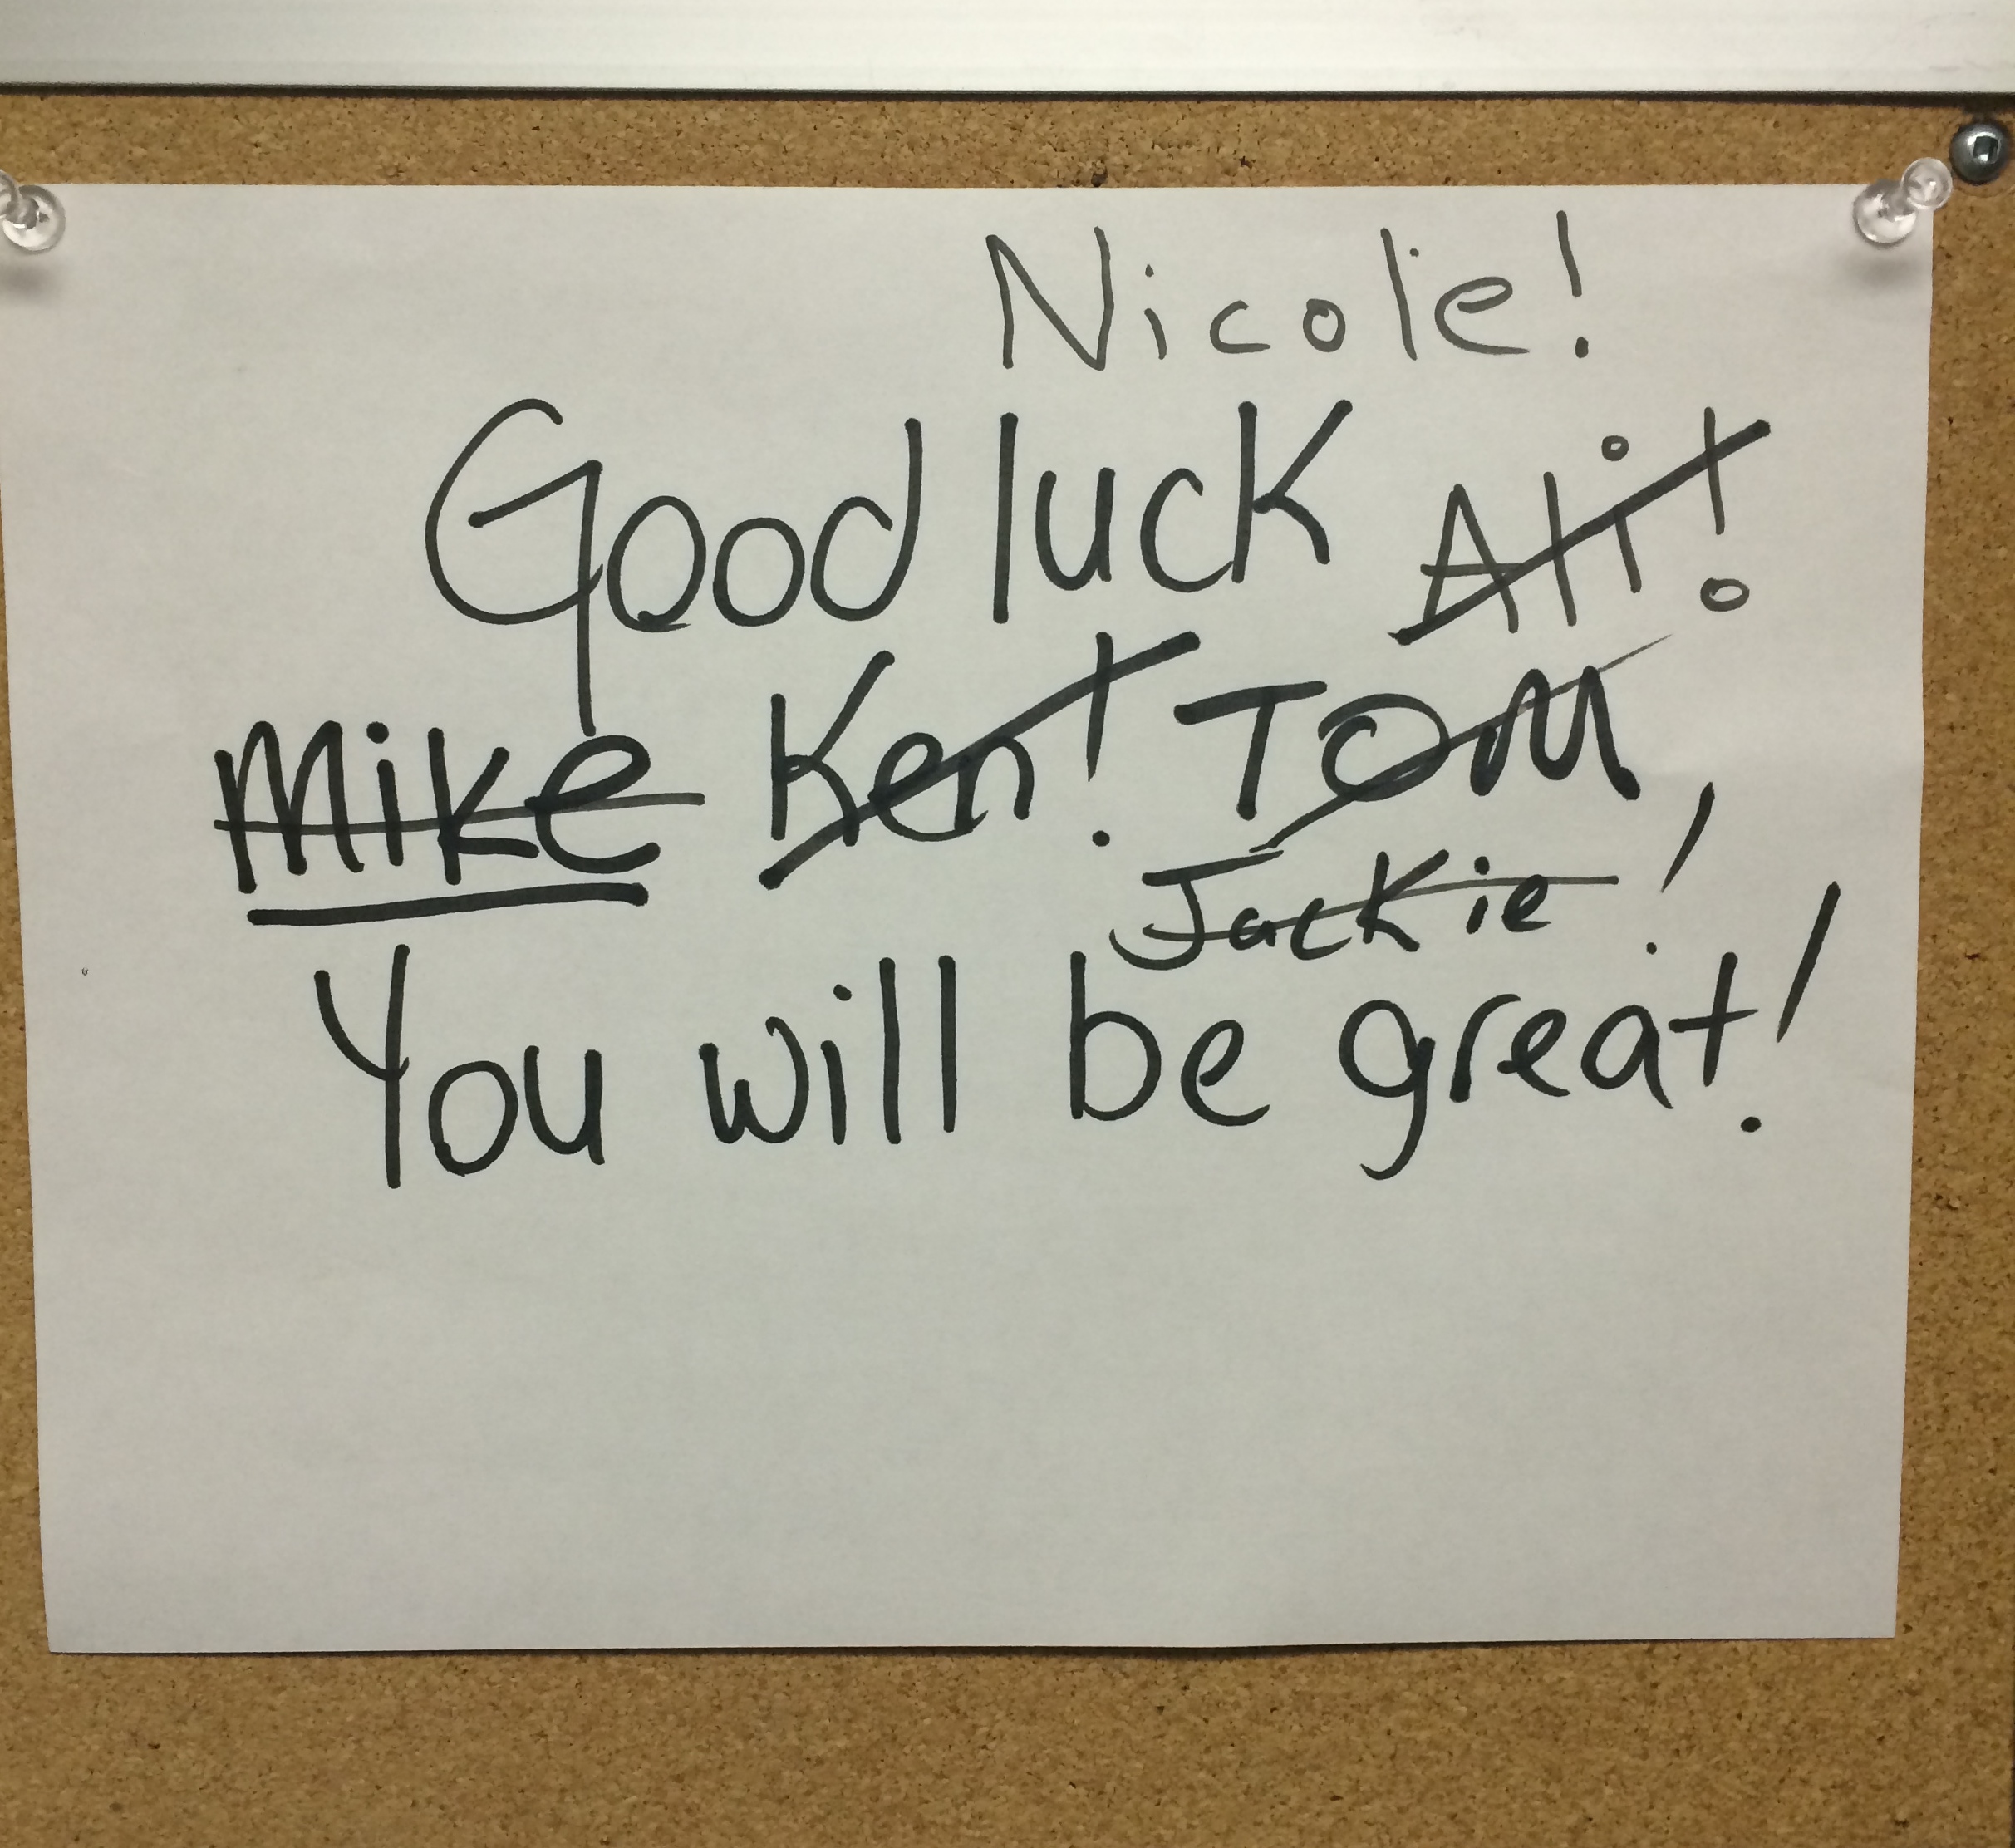 Nicole!
Good luck Ali!
Mike Ken! TOM,
Jackie!
You will be great!